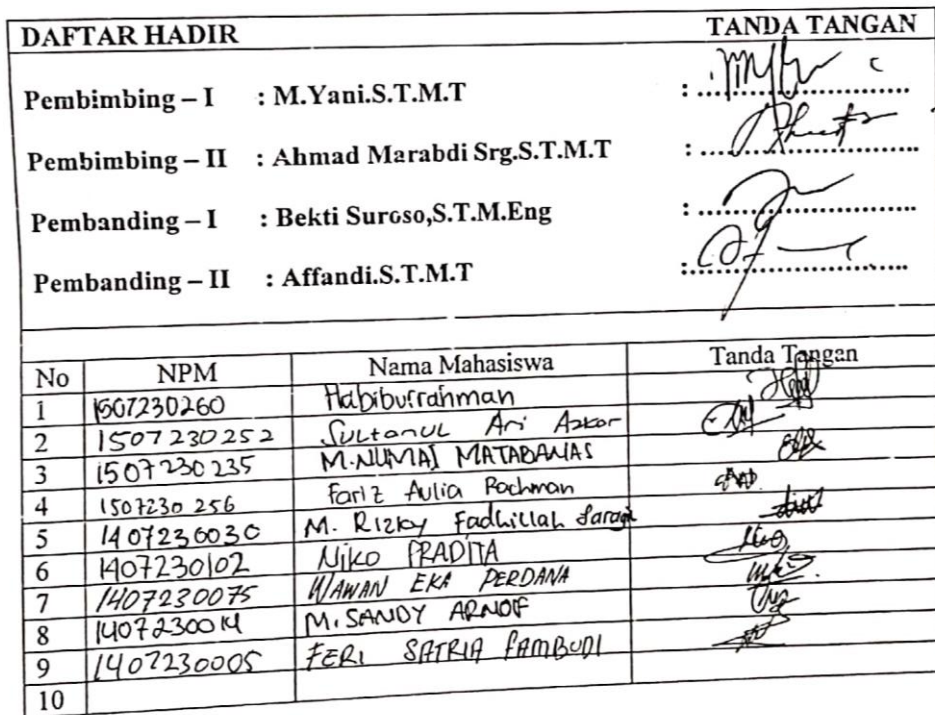 DAFTAR HADIR TANDA TANGAN
Pembimbing – I : M.Yani.S.T.M.T : ..............................
Pembimbing – II : Ahmad Marabdi Srg.S.T.M.T : ..............................
Pembanding – I : Bekti Suroso,S.T.M.Eng : ..............................
Pembanding – II : Affandi.S.T.M.T : ..............................
No NPM Nama Mahasiswa Tanda Tangan
1 1507230260 Habiburrahman
2 1507230252 Sultanul Ari Azkar
3 1507230235 M.NUMAI MATABANAS
4 1507230256 Fariz Aulia Rochman
5 1407230030 M. Rizky Fadhillah Saragi
6 1407230102 Niko PRADITA
7 1407230075 WAWAN EKA PERDANA
8 1407230014 M. SANDY
9 1407230005 FERI SATRIA PAMBUDI
10